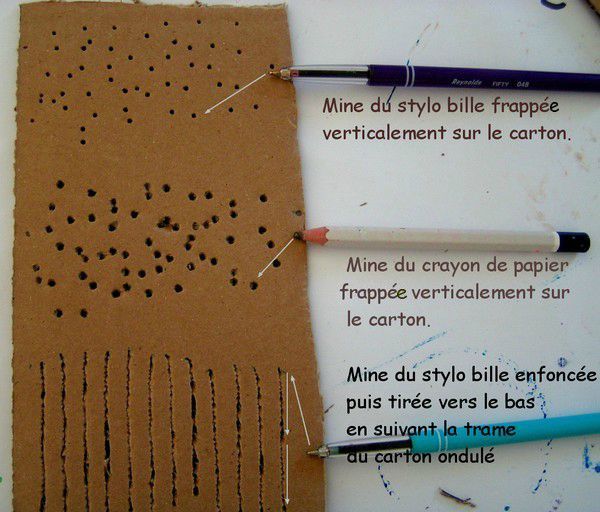 Reynolds FIFTY 048
Mine du stylo bille frappée
verticalement sur le carton.
Mine du crayon de papier
frappée verticalement sur
le carton.
Mine du stylo bille enfoncée
puis tirée vers le bas
en suivant la trame
du carton ondulé